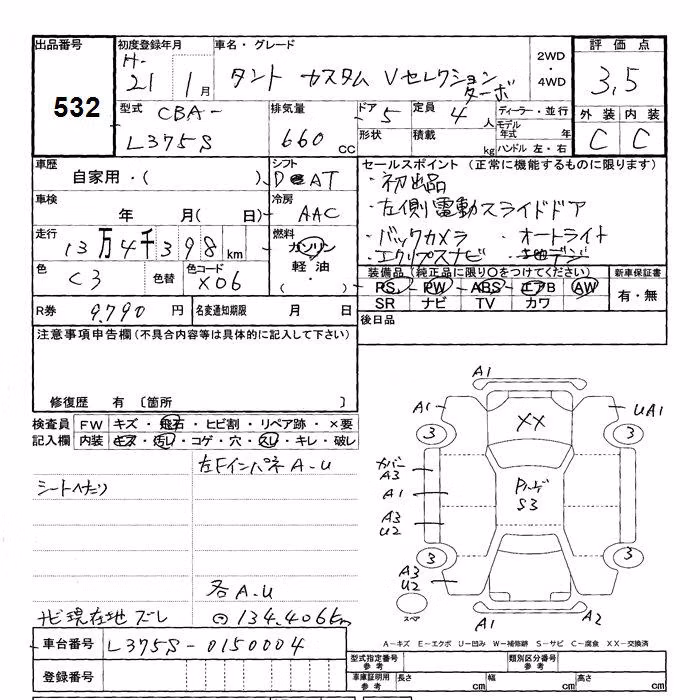 出品番号 初度登録年月 車名・グレード 2WD 評価点
532 H- 21 1月 タント カスタム Vセレクション ターボ ・4WD 3,5
型式 CBA- 排気量 ドア 5 定員 4人 ディーラー・並行 外装 内装
L375S 660 CC 形状 積載 kg モデル年式 年 ハンドル 左・右 C C
車歴 シフト セールスポイント (正常に機能するものに限ります)
自家用・( ) D AT ・初出品
車検 冷房 ・左側電動スライドドア
年 月( 日) AAC ・バックカメラ ・オートライト
走行 燃料 ・エクリプスナビ ・地デジ
13万4千398km ガソリン
色 C3 色替 色コード X06 軽油・( )
装備品 (純正品に限り○をつけてください) 新車保証書
PS PW ABS エアB AW 有・無
SR ナビ TV カワ
R券 9,790円 名変通知期限 月 日
後日品
注意事項申告欄(不具合内容等は具体的に記入して下さい)
修復歴 有 〔箇所 〕
検査員 FW キズ・飛石・ヒビ割・リペア跡・×要
記入欄 内装 キズ・汚レ・コゲ・穴・スレ・キレ・破レ
左Fインパネ A-U
シートヘタリ
各A.U
ナビ現在地ズレ 134,406km
車台番号 L375S-0150004
登録番号
A1
A1 XX UA1
3 3
カバー A3
A1 Pルーフ S3
A3 U2
3 3
A3 U2
スペア A1 A2
A-キズ E-エクボ U-凹み W-補修跡 S-サビ C-腐食 XX-交換済
型式指定番号 参考 類別区分番号 参考
車庫証明用 参考 長さ cm 幅 cm 高さ cm